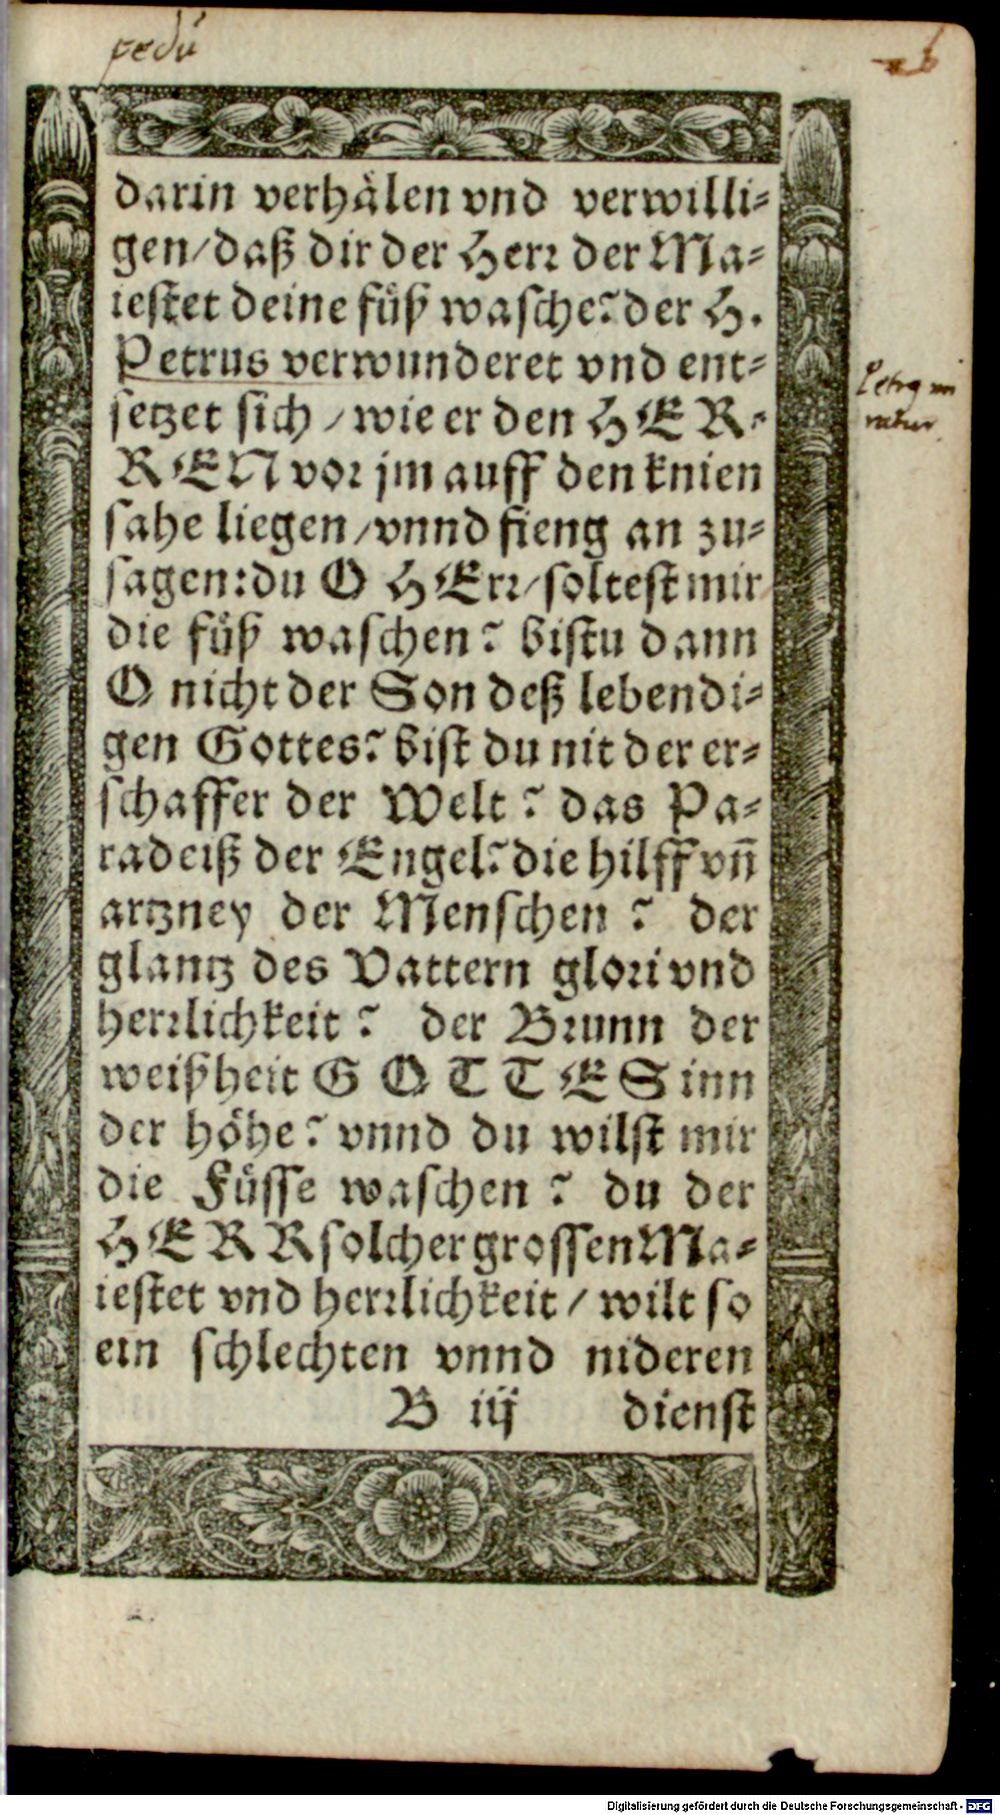 pedū
darin verhälen vnd verwilli⸗
gen/daß dir der Herr der Ma⸗
iestet deine füß wasche? der H.
Petrus verwunderet vnd ent⸗
setzet sich / wie er den HER⸗
REN vor jm auff den knien
sahe liegen/vnnd fieng an zu⸗
sagen: du O HErr/soltest mir
die füß waschen? bistu dann
O nicht der Son deß lebendi⸗
gen Gottes? bist du nit der er⸗
schaffer der Welt? das Pa⸗
radeiß der Engel? die hilff vñ
artzney der Menschen? der
glantz des Vattern glori vnd
herrlichkeit? der Brunn der
weißheit GOTTES inn
der höhe? vnnd du wilst mir
die Füsse waschen? du der
HERR solcher grossen Ma⸗
iestet vnd herrlichkeit / wilt so
ein schlechten vnnd nideren
B iij dienst
Digitalisierung gefördert durch die Deutsche Forschungsgemeinschaft - DFG